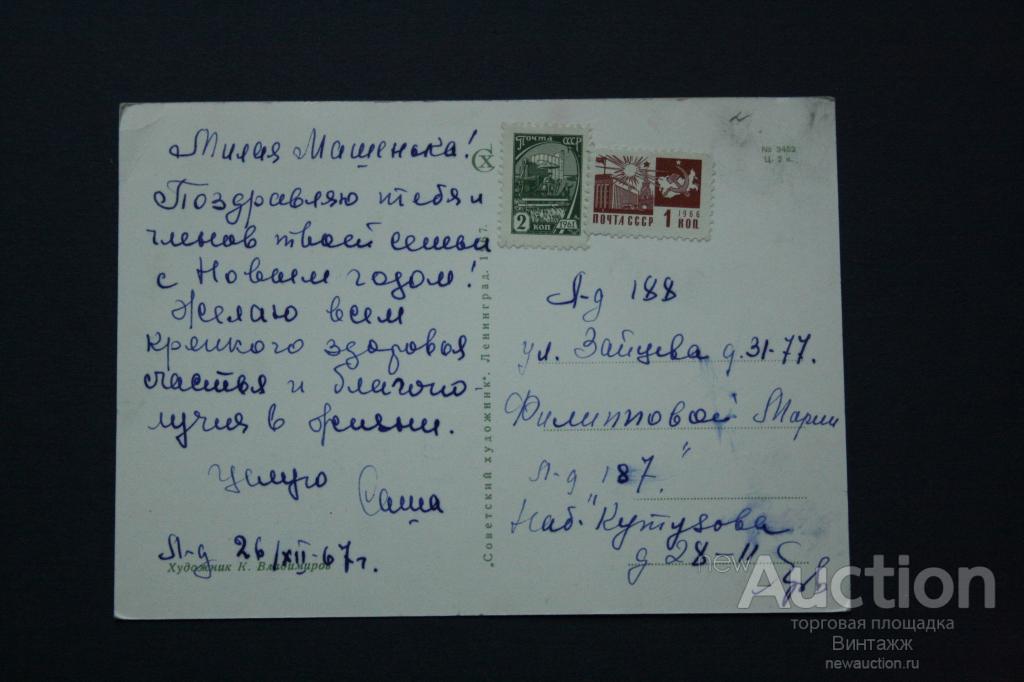 Милая Машенька!
Поздравляю тебя и
членов твоей семьи
с Новым годом!
Желаю всем
крепкого здоровья
счастья и благопо
лучия в жизни.
Целую
Саша
Л-д 26/XII-67г.
Художник К. Владимиров
„Советский художник". Ленинград.
Почта СССР
2 КОП 1961
ПОЧТА СССР
1966
1 КОП
№ 3452
Ц. 2 к.
Л-д 188
ул. Зайцева д. 31-77.
Филипповой Марии
Л-д 187
Наб. "Кутузова"
д 28-11
newAuction
торговая площадка
Винтажж
newauction.ru